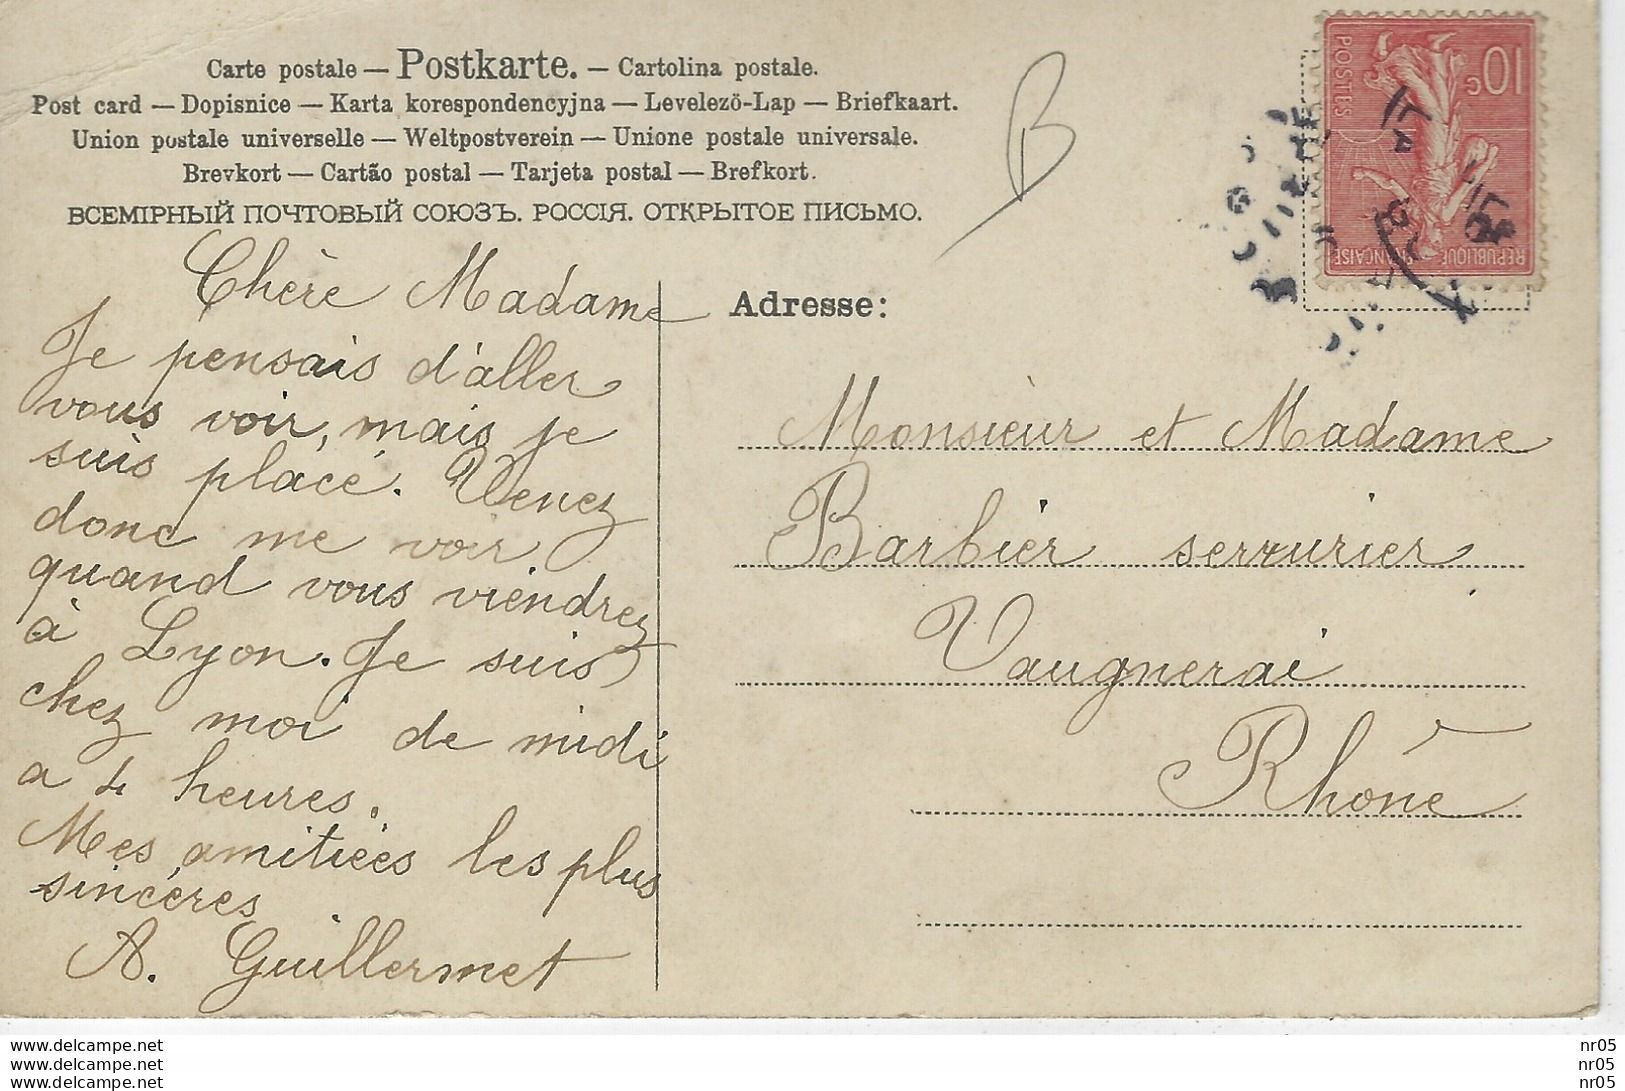 Carte postale — Postkarte. — Cartolina postale.
Post card — Dopisnice — Karta korespondencyjna — Levelező-Lap — Briefkaart.
Union postale universelle — Weltpostverein — Unione postale universale.
Brevkort — Cartão postal — Tarjeta postal — Brefkort.
ВСЕМІРНЫЙ ПОЧТОВЫЙ СОЮЗЪ. РОССІЯ. ОТКРЫТОЕ ПИСЬМО.
B
10c
POSTES
REPUBLIQUE FRANÇAISE
Chère Madame
Je pensais d'aller
vous voir, mais je
suis placé. Venez
donc me voir
quand vous viendrez
à Lyon. Je suis
chez moi de midi
a 4 heures.
Mes amitiées les plus
sincères
A. Guillermet
Adresse:
Monsieur et Madame
Barbier serrurier
Vaugnerai
Rhône
www.delcampe.net
www.delcampe.net
www.delcampe.net
nr05
nr05
nr05